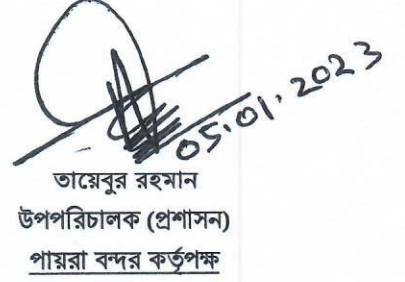 05.01.2023
তায়েবুর রহমান
উপপরিচালক (প্রশাসন)
পায়রা বন্দর কর্তৃপক্ষ